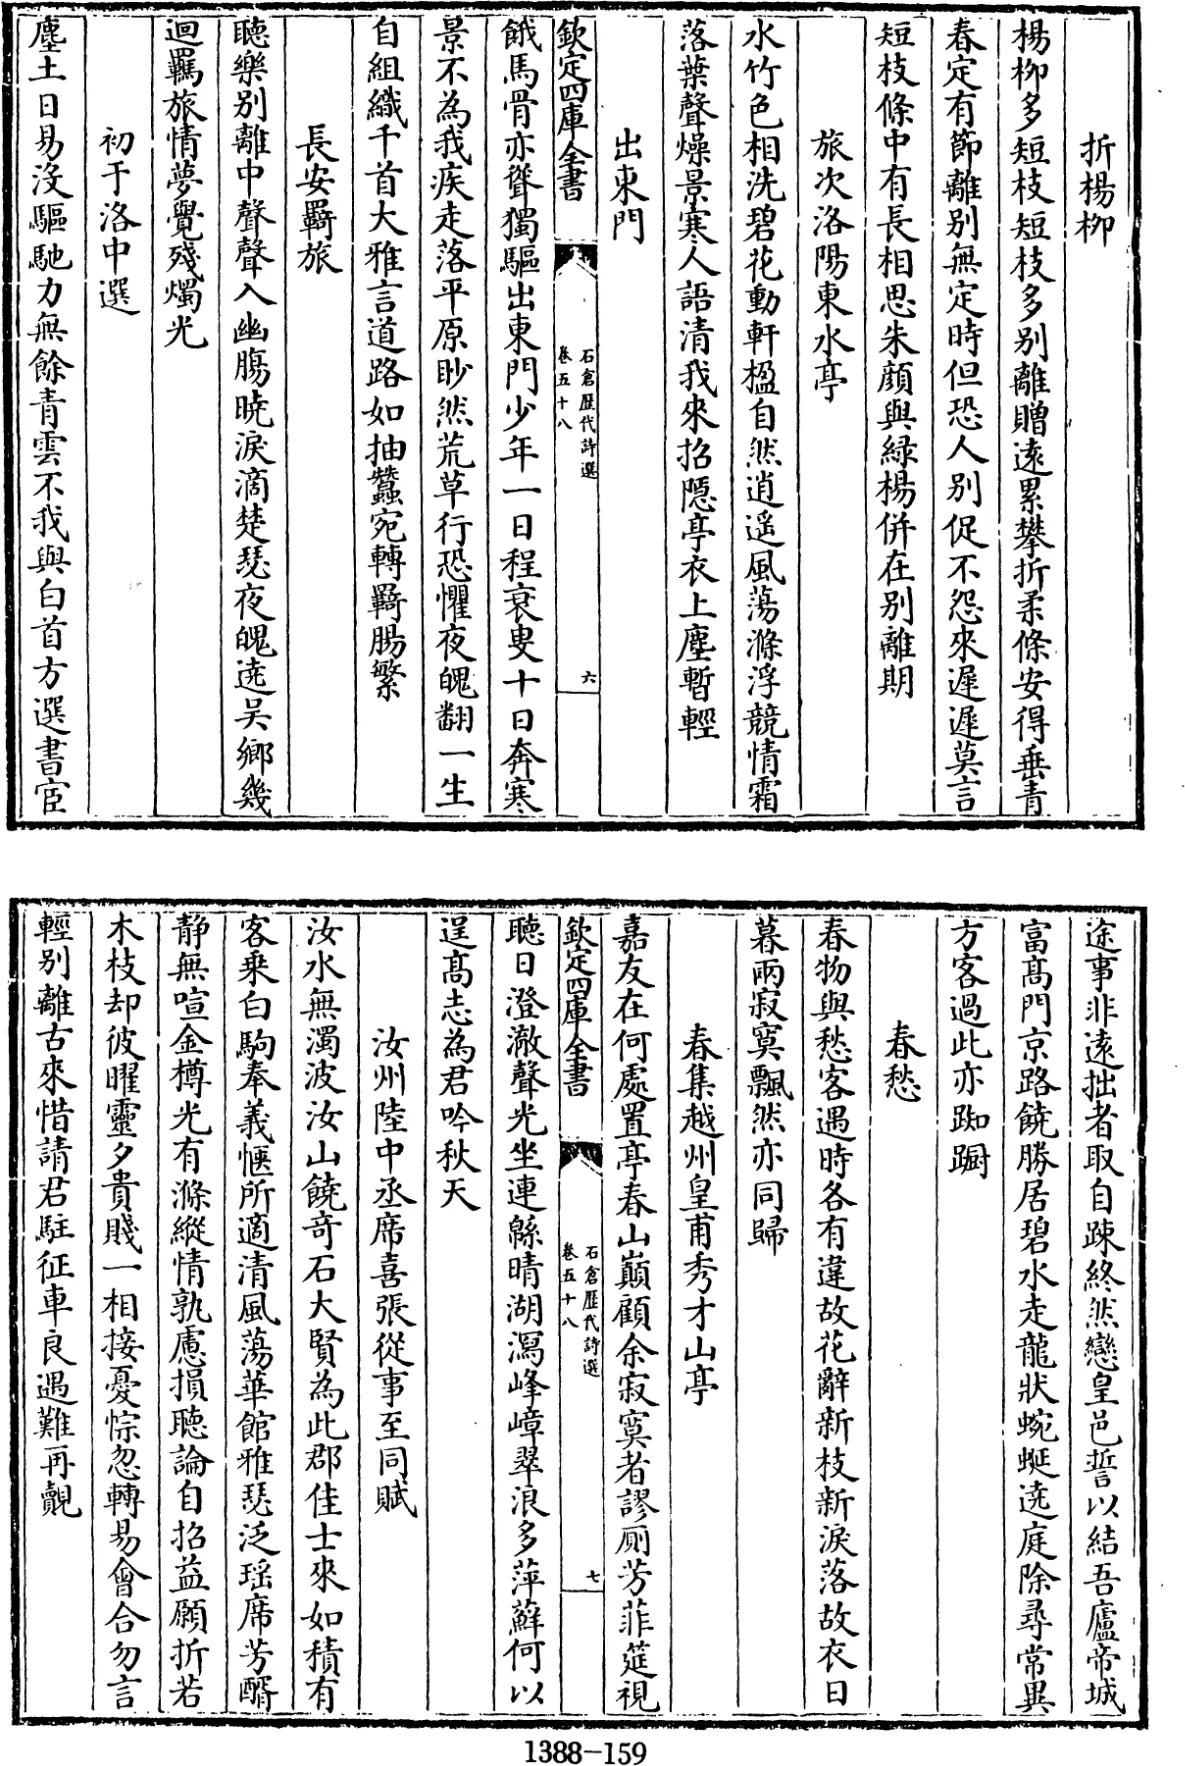 折楊柳
楊柳多短枝短枝多别離贈逺累攀折柔條安得垂青
春定有節離别無定時但恐人别促不怨來遲遲莫言
短枝條中有長相思朱顔與緑楊併在别離期
旅次洛陽東水亭
水竹色相洗碧花動軒楹自然逍遥風蕩滌浮競情霜
落葉聲燥景寒人語清我來招隠亭衣上塵暫輕
出東門
欽定四庫全書
石倉歴代詩選
卷五十八
六
餓馬骨亦聳獨驅出東門少年一日程衰叟十日奔寒
景不為我疾走落平原眇然荒草行恐懼夜魄翻一生
自組織千首大雅言道路如抽蠶宛轉羇腸繁
長安羇旅
聽樂别離中聲聲入幽腸曉淚滴楚瑟夜魄遶吳鄉幾
迴羈旅情夢覺殘燭光
初于洛中選
塵土日易沒驅馳力無餘青雲不我與白首方選書宦
途事非逺拙者取自疎終然戀皇邑誓以結吾廬帝城
富髙門京路饒勝居碧水走龍狀蜿蜒遶庭除尋常異
方客過此亦踟蹰
春愁
春物與愁客遇時各有違故花辭新枝新淚落故衣日
暮兩寂寞飄然亦同歸
春集越州皇甫秀才山亭
嘉友在何處置亭春山巔顧余寂寞者謬厠芳菲筵視
欽定四庫全書
石倉歴代詩選
卷五十八
七
聽日澄澈聲光坐連緜晴湖瀉峰嶂翠浪多萍蘚何以
逞髙志為君吟秋天
汝州陸中丞席喜張從事至同賦
汝水無濁波汝山饒竒石大賢為此郡佳士來如積有
客乗白駒奉義愜所適清風蕩華館雅瑟泛瑶席芳醑
静無喧金樽光有滌縱情孰慮損聴論自招益願折若
木枝却彼曜靈夕貴賤一相接憂悰忽轉易會合勿言
輕别離古來惜請君駐征車良遇難再覿
1388-159